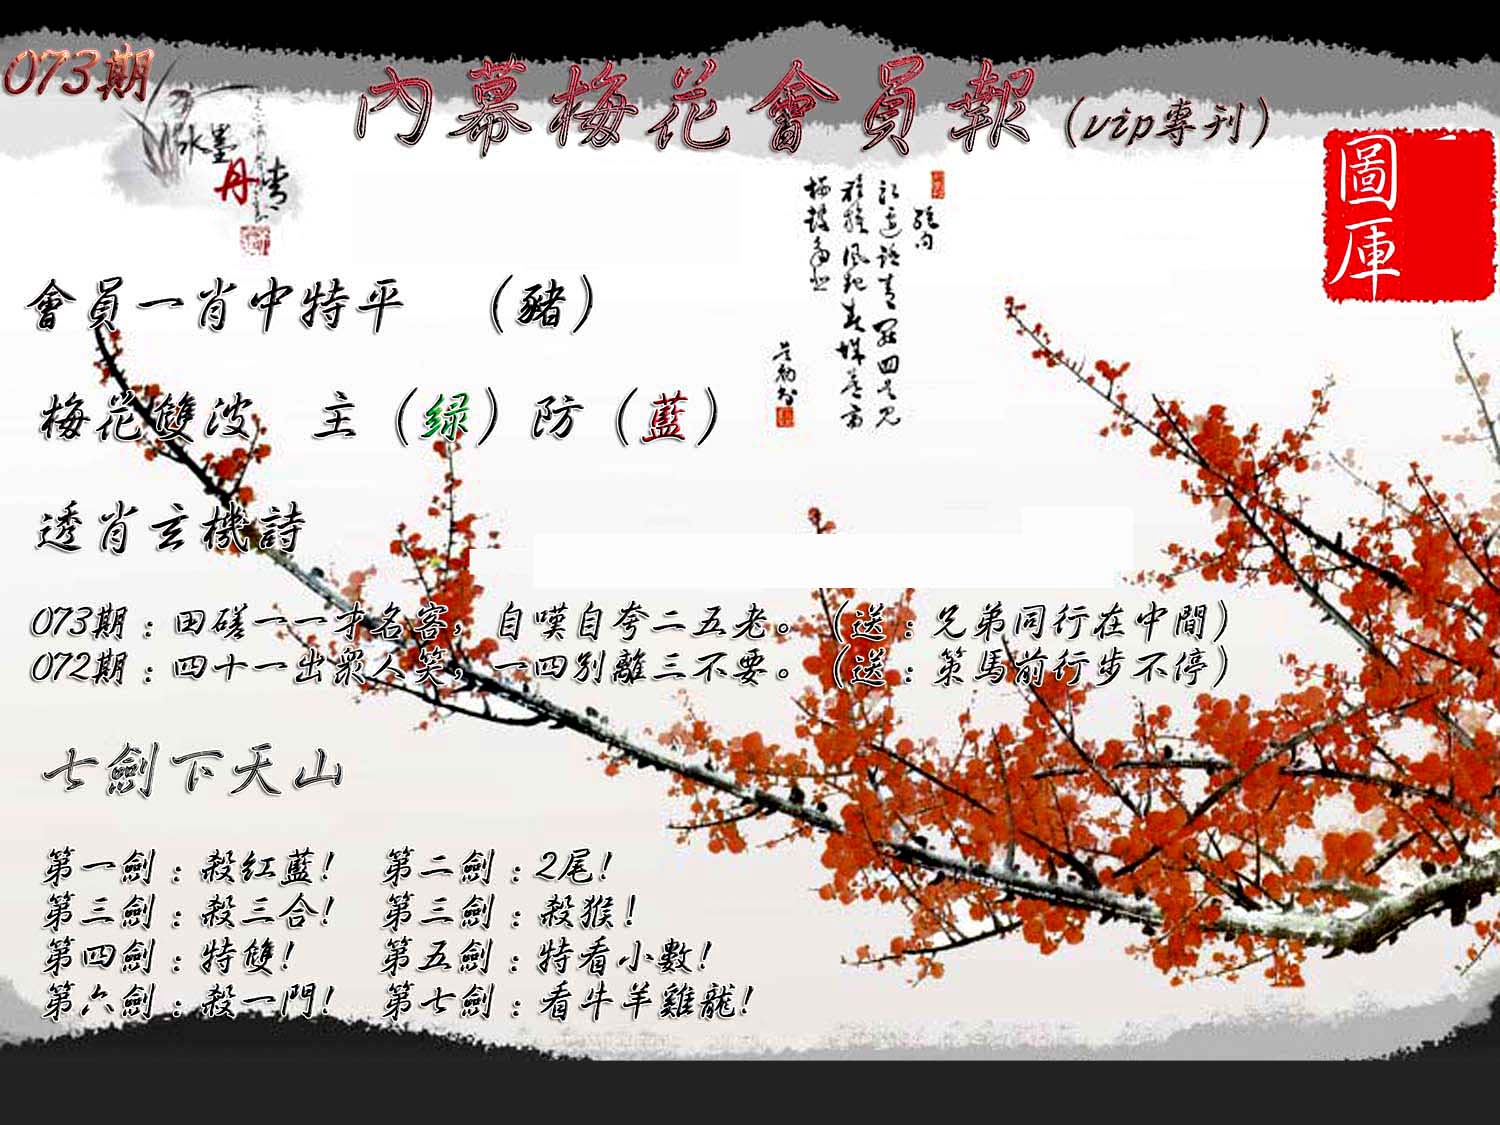 073期
內幕梅花會員報(vip專刊)
水墨
丹青
一
圖庫
會員一肖中特平 (豬)
梅花雙波 主(绿)防(藍)
透肖玄機詩
073期:田磋一一才名客,自嘆自夸二五老。(送:兄弟同行在中間)
072期:四十一出眾人笑,一四別離三不要。(送:策馬前行步不停)
七劍下天山
第一劍:殺红藍! 第二劍:2尾!
第三劍:殺三合! 第三劍:殺猴!
第四劍:特雙! 第五劍:特看小數!
第六劍:殺一門! 第七劍:看牛羊雞龍!